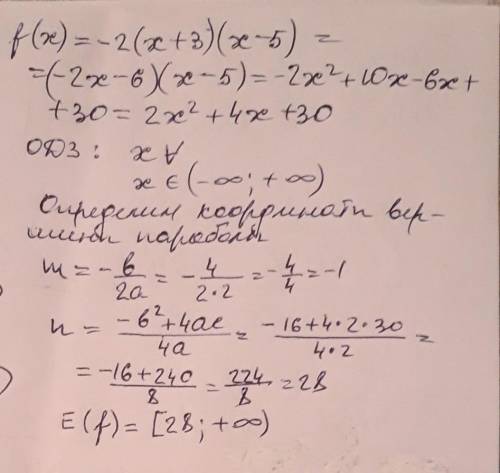 f(x) = -2(x+3)(x-5) =
=(-2x-6)(x-5)=-2x²+10x-6x+
+30 = 2x²+4x+30
ОДЗ: x ∀
x ∈ (-∞; +∞)
Определим координати вер-
шины параболы
m = -b/2a = -4/2·2 = -4/4 = -1
n = -b²+4ac/4a = -16+4·2·30/4·2 =
= -16+240/8 = 224/8 = 28
E(f) = [28; +∞)